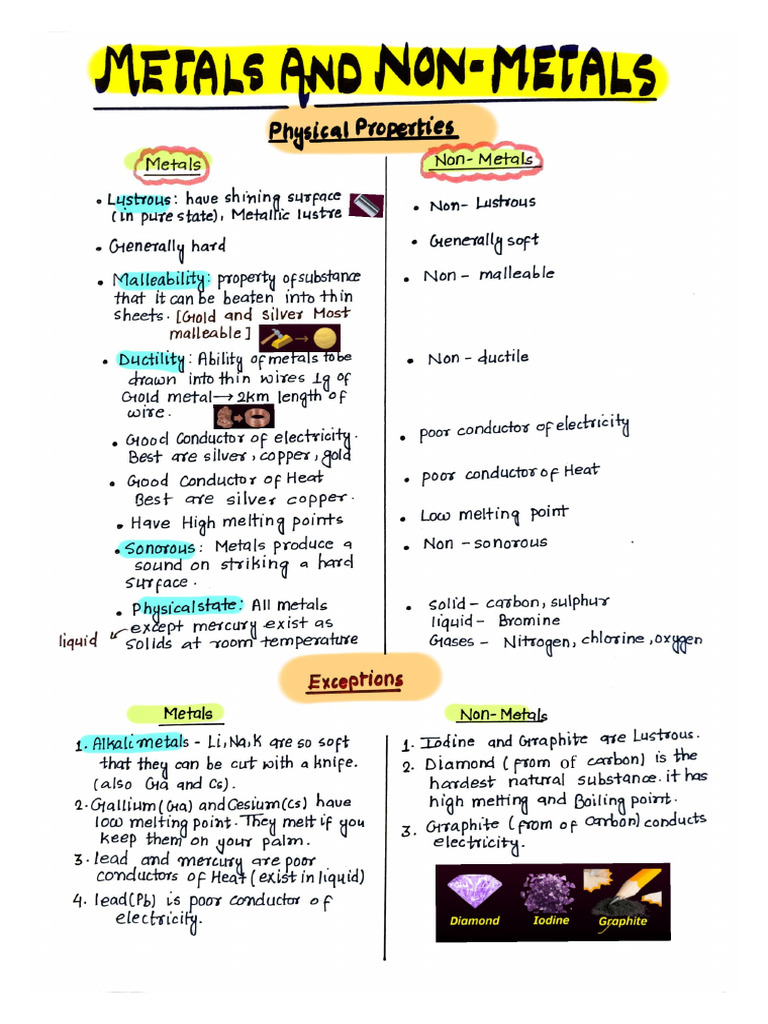 METALS AND NON-METALS
Physical Properties
Metals
• Lustrous: have shining surface
(in pure state), Metallic lustre
• Generally hard
• Malleability: property of substance
that it can be beaten into thin
sheets. [Gold and Silver Most
malleable]
• Ductility: Ability of metals to be
drawn into thin wires 1g of
Gold metal → 2km length of
wire.
• Good Conductor of electricity.
Best are silver, copper, gold
• Good Conductor of Heat
Best are silver copper.
• Have High melting points
• Sonorous: Metals produce a
sound on striking a hard
surface.
• Physical state: All metals
except mercury exist as
liquid
solids at room temperature
Non-Metals
• Non-Lustrous
• Generally soft
• Non-malleable
• Non-ductile
• poor conductor of electricity
• poor conductor of Heat
• Low melting point
• Non-sonorous
• Solid - carbon, sulphur
liquid - Bromine
Gases - Nitrogen, chlorine, oxygen
Exceptions
Metals
1. Alkali metals - Li, Na, K are so soft
that they can be cut with a knife.
(also Ga and Cs).
2. Gallium (Ga) and Cesium (Cs) have
low melting point. They melt if you
keep them on your palm.
3. lead and mercury are poor
conductors of Heat (exist in liquid)
4. lead (Pb) is poor conductor of
electricity.
Non-Metals
1. Iodine and Graphite are Lustrous.
2. Diamond (from of carbon) is the
hardest natural substance. it has
high melting and Boiling point.
3. Graphite (from of carbon) conducts
electricity.
Diamond
Iodine
Graphite